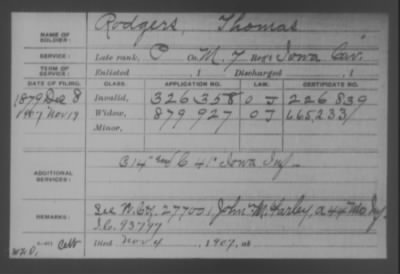 NAME OF SOLDIER: Rodgers, Thomas
SERVICE: Late rank, P Co. M, 7 Reg't Iowa Cav.
TERM OF SERVICE: Enlisted , 1 Discharged , 1
DATE OF FILING. CLASS. APPLICATION NO. LAW. CERTIFICATE NO.
1879 Dec 8 Invalid, 326358 0 J 226839
1907 Nov 19 Widow, 879927 0 J 665,233
Minor,
ADDITIONAL SERVICES: & C 41" Iowa Inf
REMARKS: See W. Ctf. 277001 John M. Farley, a 44 Mo Inf.
I.C. 93797
Died Nov 4, 1907, at